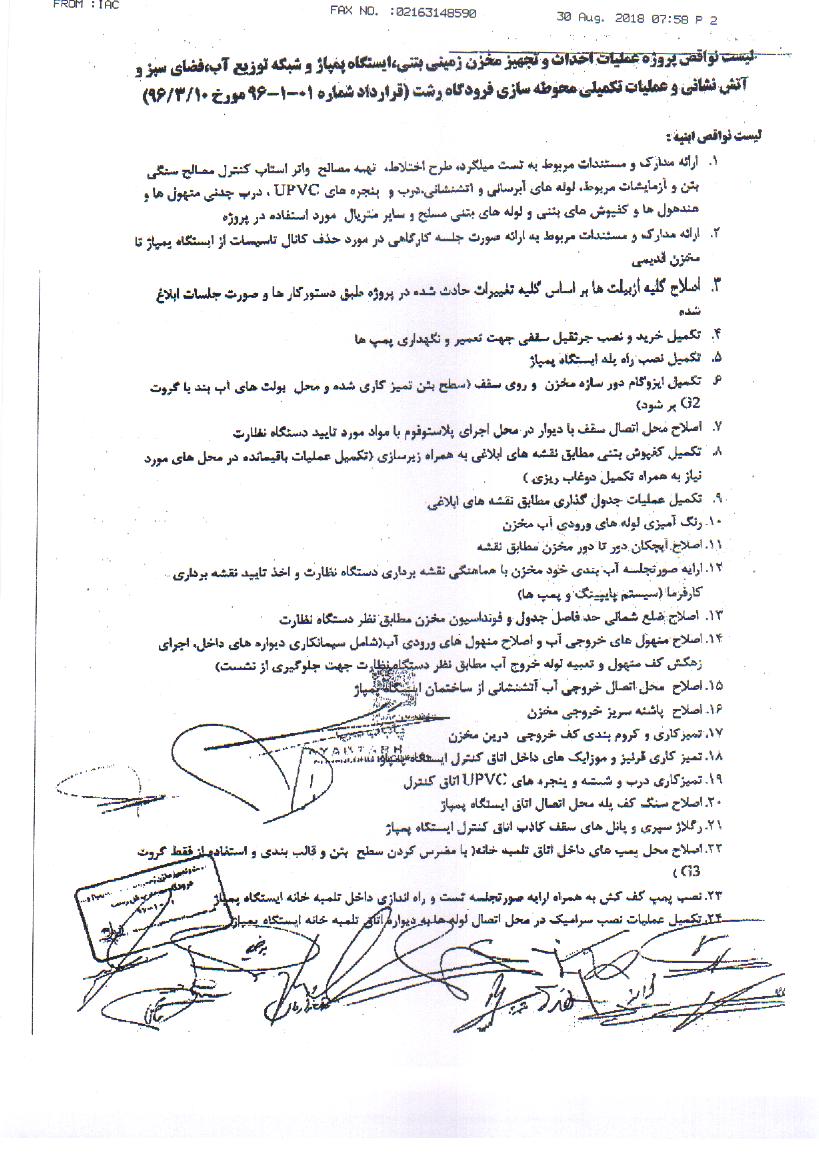 FROM : IAC FAX NO. :02163148590 30 Aug. 2018 07:58 P 2
لیست نواقص پروژه عملیات احداث و تجهیز مخزن زمینی بتنی،ایستگاه پمپاژ و شبکه توزیع آب،فضای سبز و
آتش نشانی و عملیات تکمیلی محوطه سازی فرودگاه رشت (قرارداد شماره ۰۱-۱-۹۶ مورخ ۹۶/۳/۱۰)
لیست نواقص ابنیه :
۱. ارائه مدارک و مستندات مربوط به تست میلگرد، طرح اختلاط، تهیه مصالح واتر استاپ کنترل مصالح سنگی
بتن و آزمایشات مربوط، لوله های آبرسانی و آتشنشانی،درب و پنجره های UPVC ، درب چدنی منهول ها و
هندهول ها و کفپوش های بتنی و لوله های بتنی مسلح و سایر متریال مورد استفاده در پروژه
۲. ارائه مدارک و مستندات مربوط به ارائه صورت جلسه کارگاهی در مورد حذف کانال تاسیسات از ایستگاه پمپاژ تا
مخزن قدیمی
۳. اصلاح کلیه ازبیلت ها بر اساس کلیه تغییرات حادث شده در پروژه طبق دستورکار ها و صورت جلسات ابلاغ
شده
۴. تکمیل خرید و نصب جرثقیل سقفی جهت تعمیر و نگهداری پمپ ها
۵. تکمیل نصب راه پله ایستگاه پمپاژ
۶. تکمیل ایزوگام دور سازه مخزن و روی سقف (سطح بتن تمیز کاری شده و محل بولت های آب بند با گروت
G2 پر شود)
۷. اصلاح محل اتصال سقف با دیوار در محل اجرای پلاستوفوم با مواد مورد تایید دستگاه نظارت
۸. تکمیل کفپوش بتنی مطابق نقشه های ابلاغی به همراه زیرسازی (تکمیل عملیات باقیمانده در محل های مورد
نیاز به همراه تکمیل دوغاب ریزی )
۹. تکمیل عملیات جدول گذاری مطابق نقشه های ابلاغی
۱۰. رنگ آمیزی لوله های ورودی آب مخزن
۱۱. اصلاح آبچکان دور تا دور مخزن مطابق نقشه
۱۲. ارایه صورتجلسه آب بندی خود مخزن با هماهنگی نقشه برداری دستگاه نظارت و اخذ تایید نقشه برداری
کارفرما (سیستم پایپینگ و پمپ ها)
۱۳. اصلاح ضلع شمالی حد فاصل جدول و فونداسیون مخزن مطابق نظر دستگاه نظارت
۱۴. اصلاح منهول های خروجی آب و اصلاح منهول های ورودی آب(شامل سیمانکاری دیواره های داخل، اجرای
زهکش کف منهول و تعبیه لوله خروج آب مطابق نظر دستگاه نظارت جهت جلوگیری از نشست)
۱۵. اصلاح محل اتصال خروجی آب آتشنشانی از ساختمان ایستگاه پمپاژ
۱۶. اصلاح پاشنه سرریز خروجی مخزن
۱۷. تمیزکاری و کروم بندی کف خروجی درین مخزن
۱۸. تمیز کاری قرنیز و موزایک های داخل اتاق کنترل ایستگاه پمپاژ
۱۹. تمیزکاری درب و شیشه و پنجره های UPVC اتاق کنترل
۲۰. اصلاح سنگ کف پله محل اتصال اتاق ایستگاه پمپاژ
۲۱. رگلاژ سپری و پانل های سقف کاذب اتاق کنترل ایستگاه پمپاژ
۲۲. اصلاح محل پمپ های داخل اتاق تلمبه خانه( با مضرس کردن سطح بتن و قالب بندی و استفاده از فقط گروت
G3 )
۲۳. نصب پمپ کف کش به همراه ارایه صورتجلسه تست و راه اندازی داخل تلمبه خانه ایستگاه پمپاژ
۲۴. تکمیل عملیات نصب سرامیک در محل اتصال لوله ها به دیواره اتاق تلمبه خانه ایستگاه پمپاژ